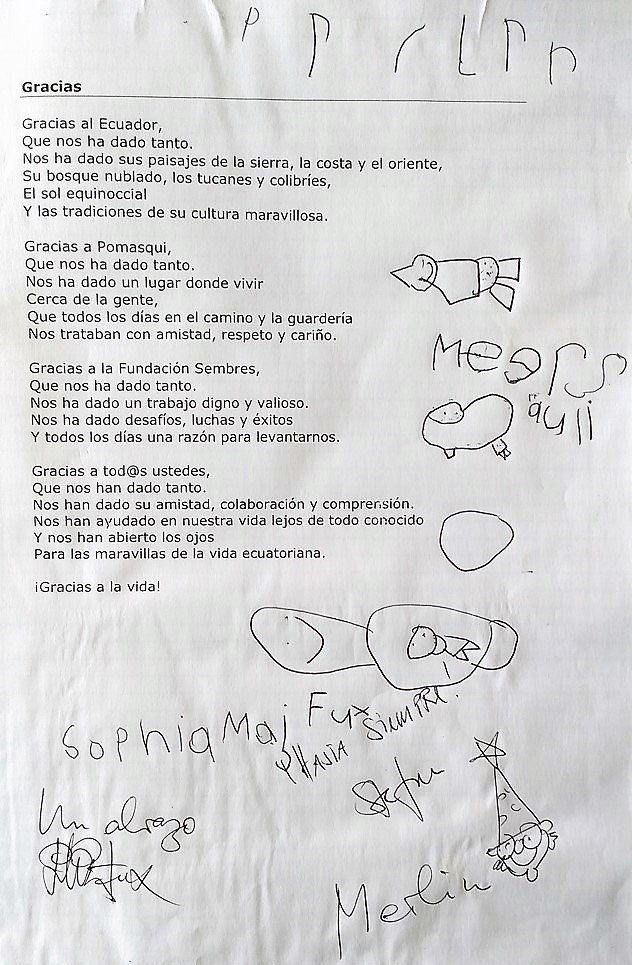 Gracias
Gracias al Ecuador,
Que nos ha dado tanto.
Nos ha dado sus paisajes de la sierra, la costa y el oriente,
Su bosque nublado, los tucanes y colibríes,
El sol equinoccial
Y las tradiciones de su cultura maravillosa.
Gracias a Pomasqui,
Que nos ha dado tanto.
Nos ha dado un lugar donde vivir
Cerca de la gente,
Que todos los días en el camino y la guardería
Nos trataban con amistad, respeto y cariño.
Gracias a la Fundación Sembres,
Que nos ha dado tanto.
Nos ha dado un trabajo digno y valioso.
Nos ha dado desafíos, luchas y éxitos
Y todos los días una razón para levantarnos.
Gracias a tod@s ustedes,
Que nos han dado tanto.
Nos han dado su amistad, colaboración y comprensión.
Nos han ayudado en nuestra vida lejos de todo conocido
Y nos han abierto los ojos
Para las maravillas de la vida ecuatoriana.
¡Gracias a la vida!
Sophia Maj Fux
HASTA SIEMPRE.
Un abrazo
Merlin